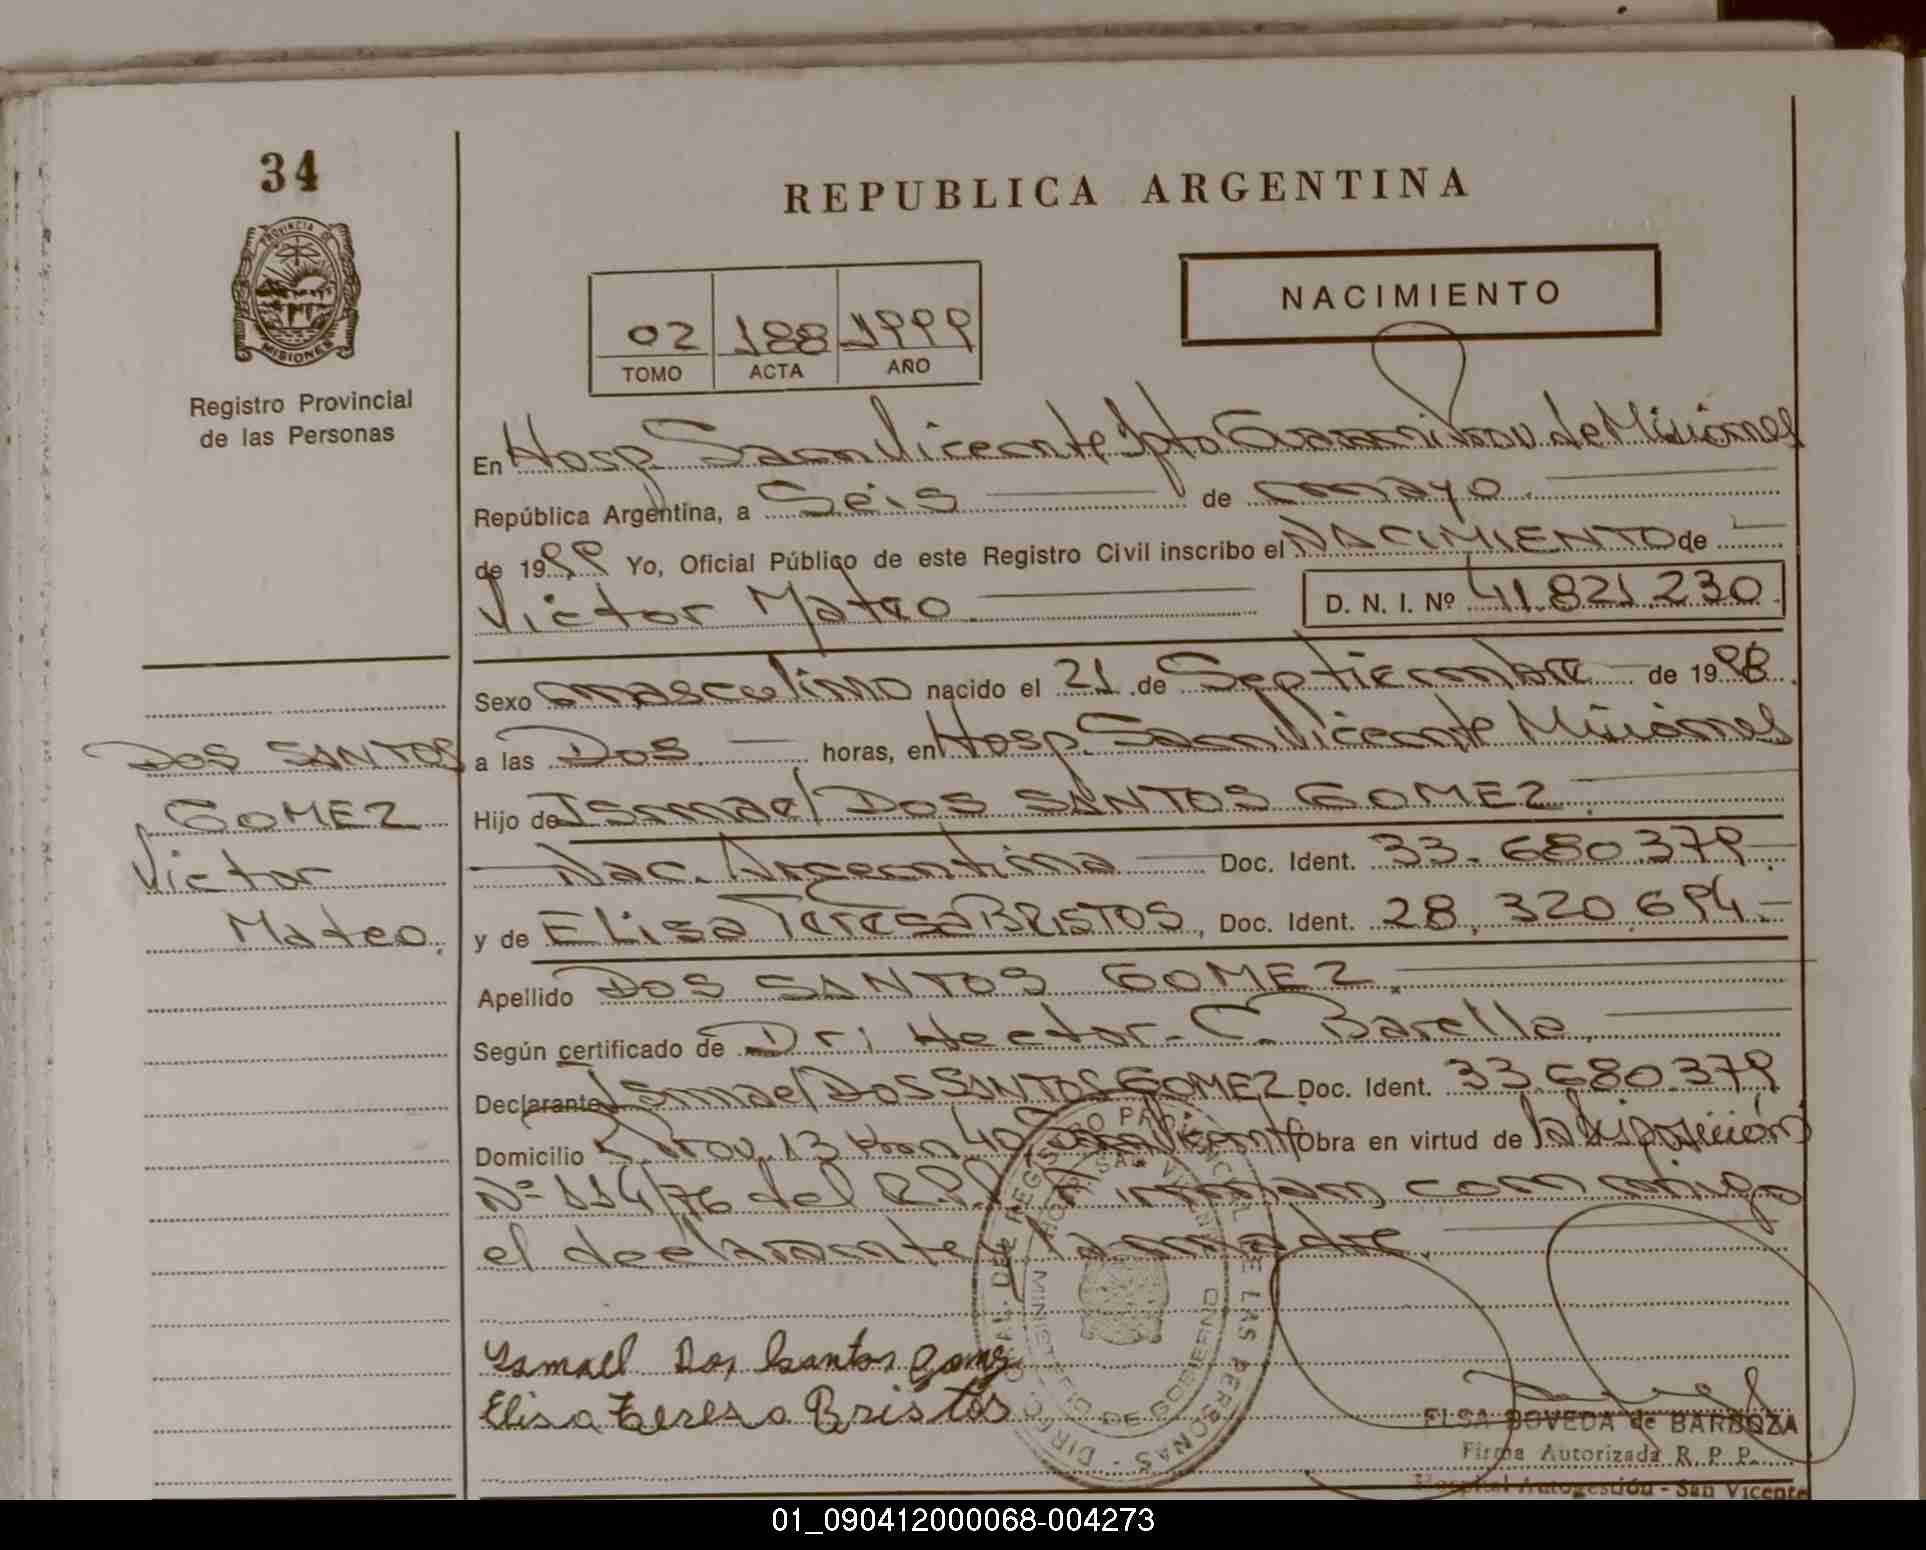 34
PROVINCIA DE
MISIONES
Registro Provincial
de las Personas
REPUBLICA ARGENTINA
NACIMIENTO
02 188 1999
TOMO ACTA AÑO
En Hosp. San Vicente Dpto Guarani Prov. de Misiones
República Argentina, a Seis de mayo
de 1999 Yo, Oficial Público de este Registro Civil inscribo el NACIMIENTO de
Victor Mateo D. N. I. Nº 41.821.230
Sexo masculino nacido el 21 de Septiembre de 1998
a las Dos horas, en Hosp. San Vicente Misiones
Hijo de Ismael DOS SANTOS GOMEZ
Nac. Argentina Doc. Ident. 33.680.379
y de Elisa Teresa BRISTOS, Doc. Ident. 28.320.694
Apellido DOS SANTOS GOMEZ
Según certificado de Dr: Hector C. Barella
Declarante Ismael DOS SANTOS GOMEZ Doc. Ident. 33.680.379
Domicilio R. Prov. 13 Km 40 San Vicente Obra en virtud de la Disposición
Nº 114/76 del R.P.P. Firman conmigo
el declarante y la madre.
DOS SANTOS
GOMEZ
Victor
Mateo.
Ismael Dos Santos Gomez
Elisa Teresa Bristos
DIREC. GRAL. DEL REGISTRO PROVINCIAL DE LAS PERSONAS
HOSP. SAN VICENTE
MINISTERIO DE GOBIERNO
ELSA BOVEDA de BARBOZA
Firma Autorizada R. P. P.
Hospital Autogestión - San Vicente
01_090412000068-004273